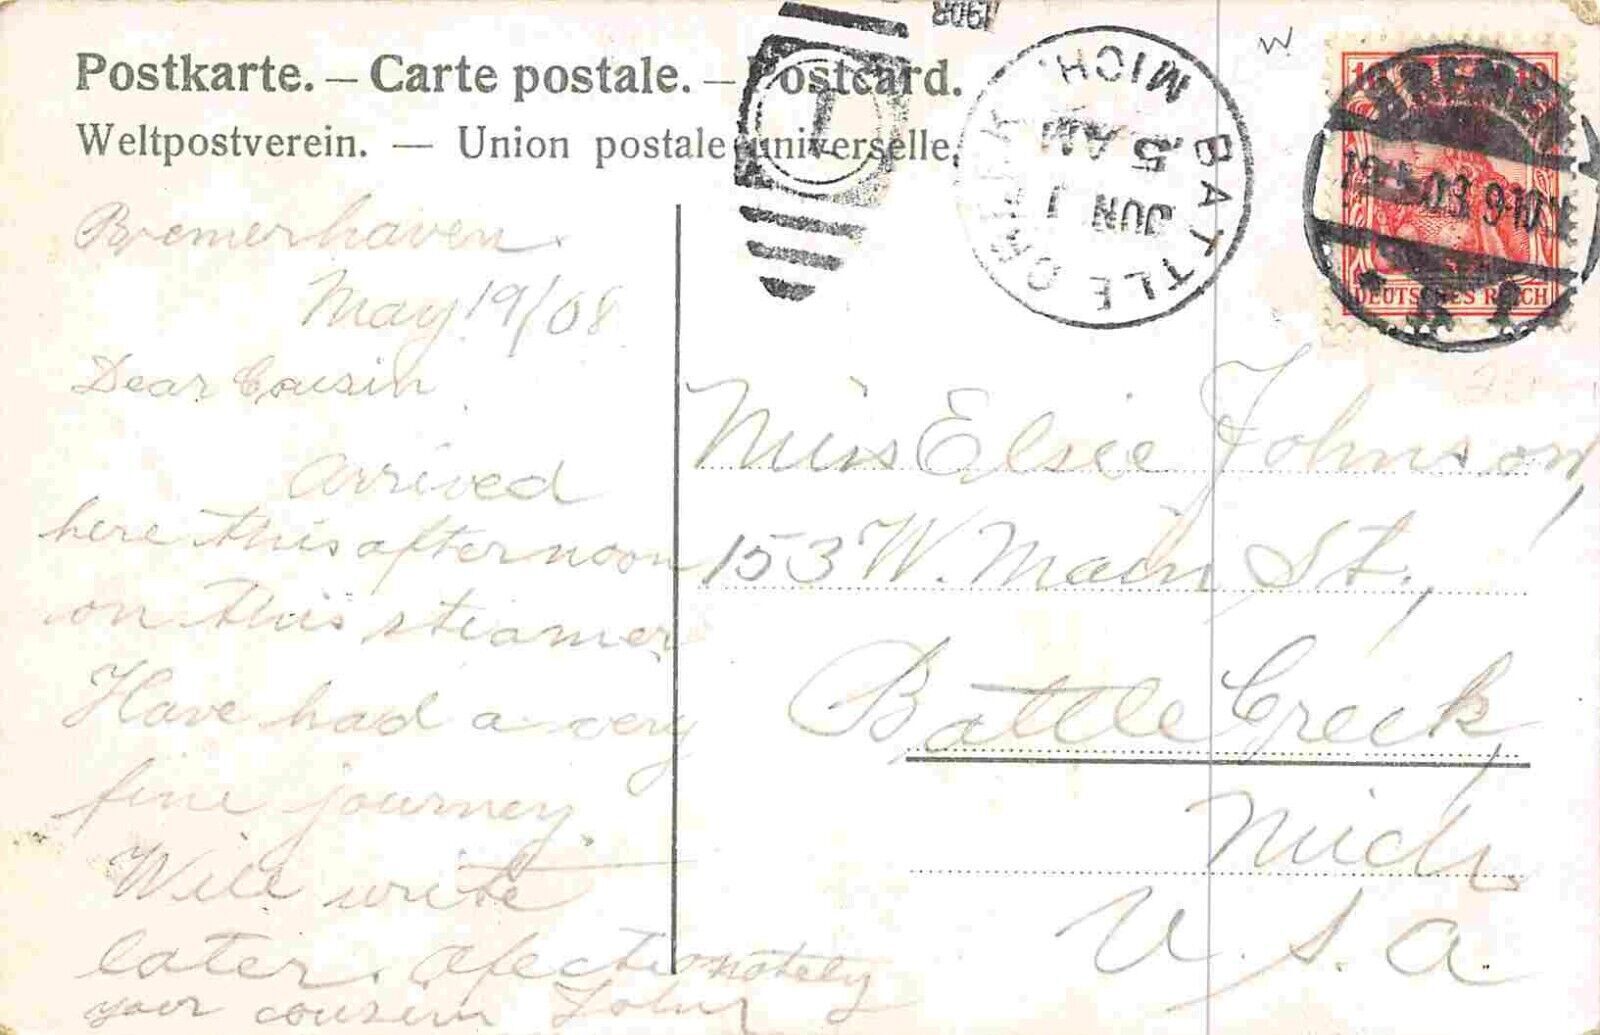 Postkarte. – Carte postale. – Postcard.
Weltpostverein. — Union postale universelle.
1908
1
BATTLE CREEK MICH.
JUN 1
5 AM
W
10 10
BREMEN
19 5.08 9-10
* 1
DEUTSCHES REICH
Bremerhaven.
May 19/08
Dear Cousin
Arrived
here this afternoon
on this steamer
Have had a very
fine journey.
Will write
later. Afectionately
your cousin John
Miss Elsie Johnson,
153 W. Main St.,
Battle Creek,
Mich.
U.S.A.